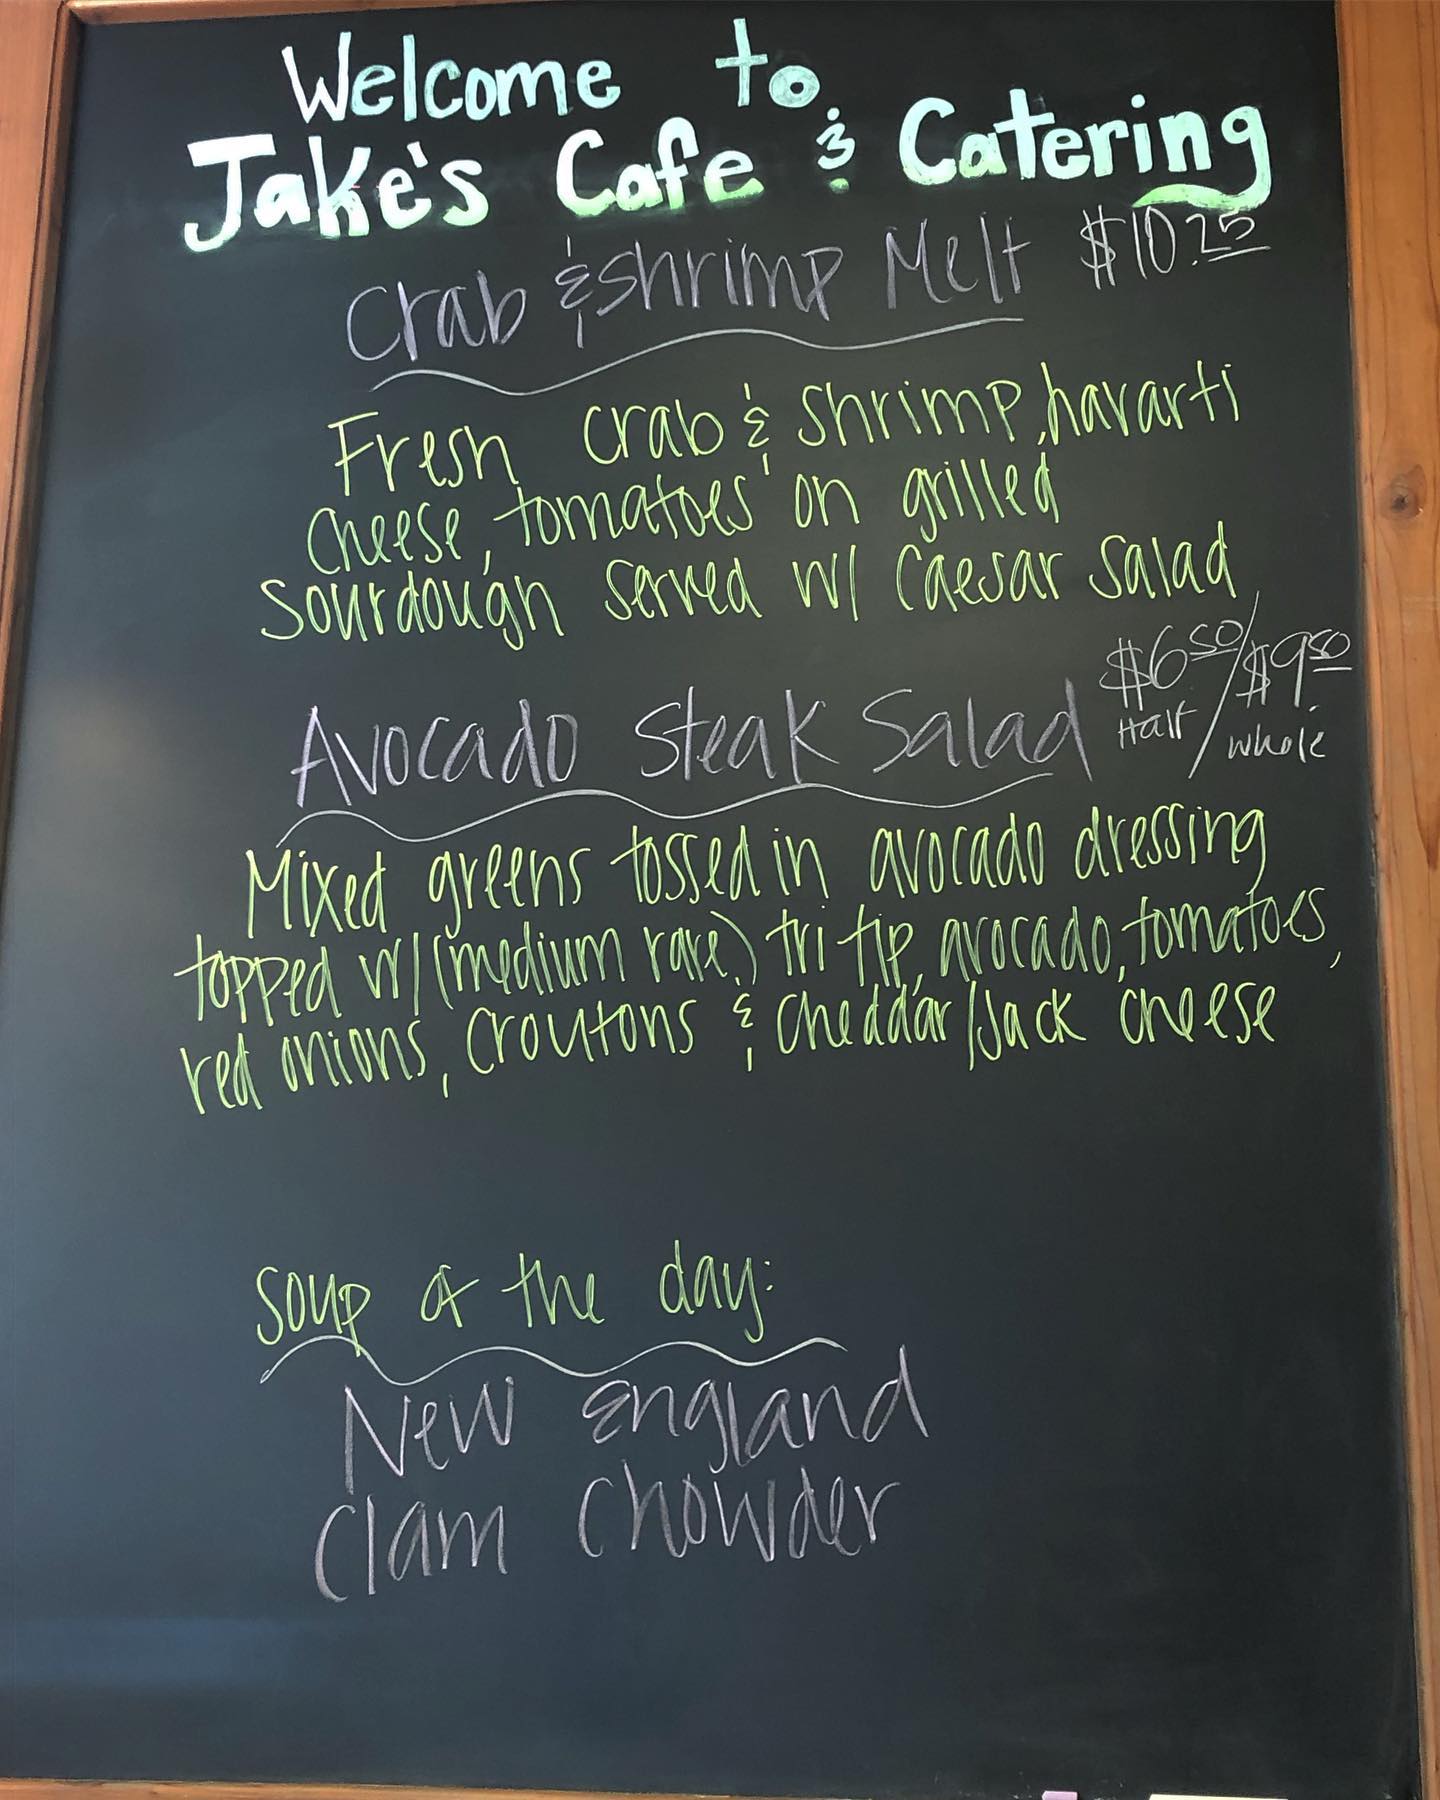 Welcome to
Jake's Cafe & Catering
Crab & Shrimp Melt $10.25
Fresh crab & shrimp, havarti
cheese, tomatoes on grilled
sourdough served w/ caesar salad
Avocado Steak Salad $6.50 Half / $9.50 whole
Mixed greens tossed in avocado dressing
topped w/ (medium rare) tri tip, avocado, tomatoes,
red onions, croutons & cheddar/Jack cheese
Soup of the day:
New England
Clam Chowder